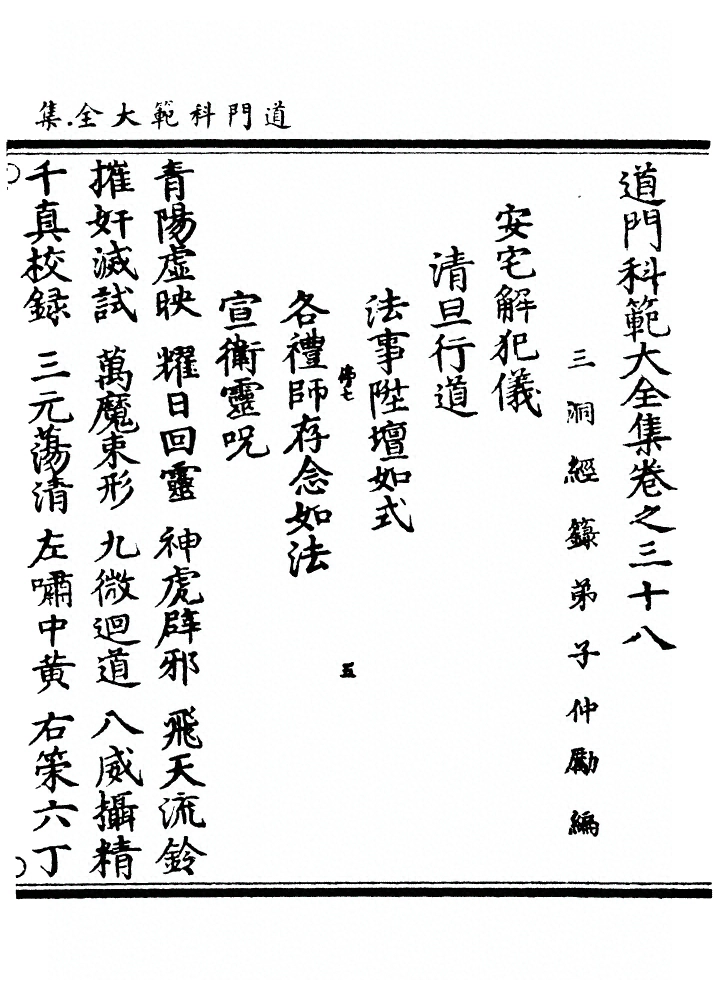 道門科範大全集
道門科範大全集卷之三十八
三洞經籙弟子仲勵編
安宅解犯儀
清旦行道
法事陞壇如式
五
各禮師存念如法
宣衛靈呪
青陽虛映　耀日回靈　神虎辟邪　飛天流鈴
摧奸滅試　萬魔束形　九微迴道　八威攝精
千真校録　三元蕩清　左嘯中黃　右策六丁